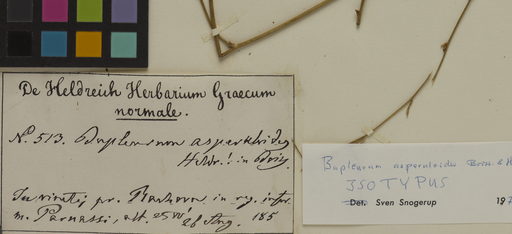 De Heldreich Herbarium Graecum
normale.
No. 513. Bupleurum asperuloides
Heldr.! in Boiss.
pr. in reg. infer.
m. Parnassi, alt. 28 Aug. 185
Bupleurum asperuloides Boiss. & H
ISOTYPUS
Det. Sven Snogerup 197